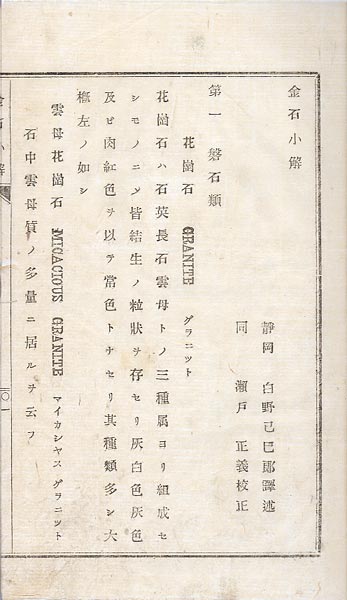 金石小解
靜岡 白野己巳郎譯述
同 瀬戸正義校正
第一 磐石類
花崗石 GRANITE グラニット
花崗石ハ石英長石雲母トノ三種属ヨリ組成セ
シモノニメ皆結生ノ粒狀ヲ存セリ灰白色灰色
及ビ肉紅色ヲ以テ常色トナセリ其種類多シ大
概左ノ如シ
雲母花崗石 MICACIOUS GRANITE マイカシヤス グラニット
石中雲母質ノ多量ニ居ルヲ云フ
金石小解
一